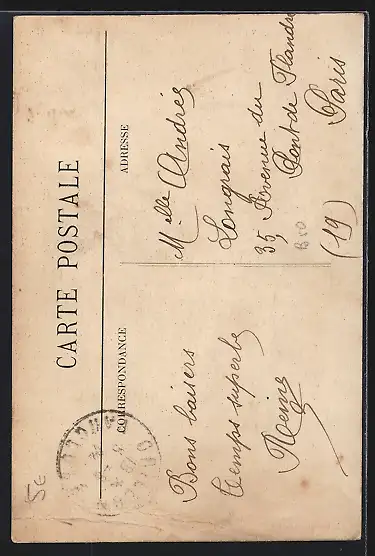 CARTE POSTALE
CORRESPONDANCE
ADRESSE
Bons baisers
temps superbe
Reine
Melle Andrée
Longrais
35 Avenue du
Pont de Flandre
Paris
(19)
5€